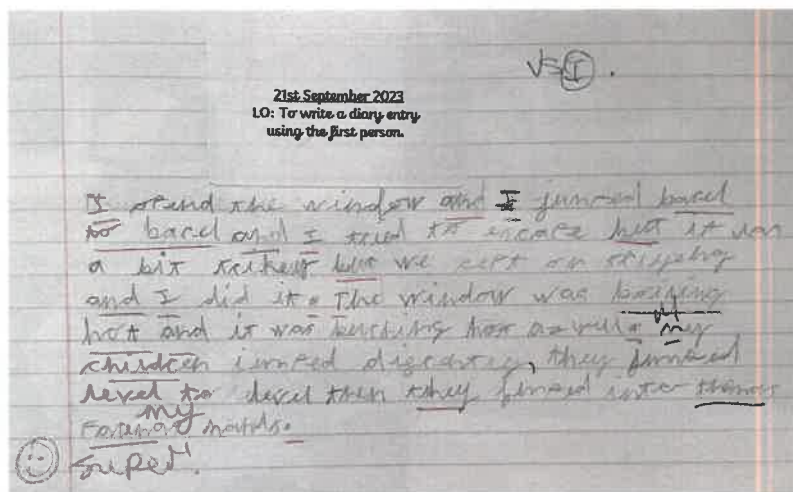 V=I.
21st September 2023
LO: To write a diary entry
using the first person.
I opend the window and I jumped barel
to barel and I tried to escape but it was
a bit but we cept on
and I did it. The window was boiling
hot and it was burching hot as well. My
children jumped, they jumped
level to level then they jumped into
my hands.
Super!